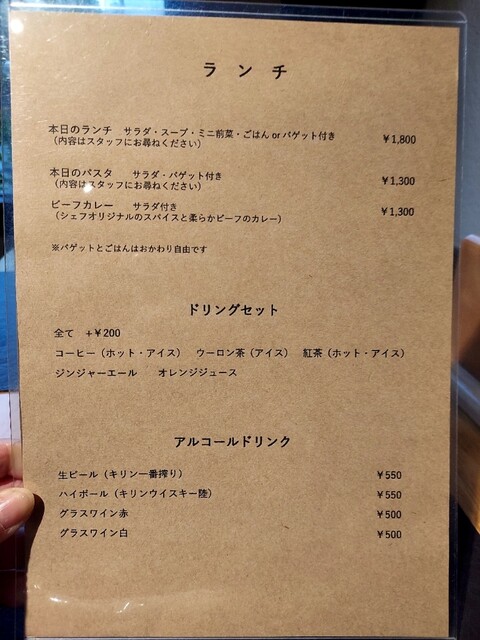 ランチ
本日のランチ サラダ・スープ・ミニ前菜・ごはん or バゲット付き ¥1,800
（内容はスタッフにお尋ねください）
本日のパスタ サラダ・バゲット付き ¥1,300
（内容はスタッフにお尋ねください）
ビーフカレー サラダ付き ¥1,300
（シェフオリジナルのスパイスと柔らかビーフのカレー）
※バゲットとごはんはおかわり自由です
ドリングセット
全て +¥200
コーヒー（ホット・アイス） ウーロン茶（アイス） 紅茶（ホット・アイス）
ジンジャーエール オレンジジュース
アルコールドリンク
生ビール（キリン一番搾り） ¥550
ハイボール（キリンウイスキー陸） ¥550
グラスワイン赤 ¥500
グラスワイン白 ¥500